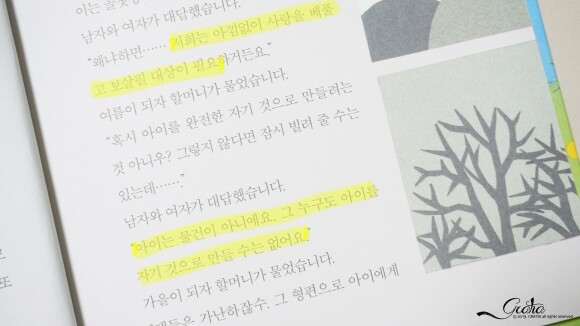 남자와 여자가 대답했습니다.
"왜냐하면…… 저희는 아낌없이 사랑을 베풀
고 보살필 대상이 필요하거든요."
여름이 되자 할머니가 물었습니다.
"혹시 아이를 완전한 자기 것으로 만들려는
것 아니우? 그렇지 않다면 잠시 빌려 줄 수는
있는데……."
남자와 여자가 대답했습니다.
"아이는 물건이 아니에요. 그 누구도 아이를
자기 것으로 만들 수는 없어요."
가을이 되자 할머니가 물었습니다.
가난하잖수. 그 형편으로 아이에게
또
Gratia
all rights reserved